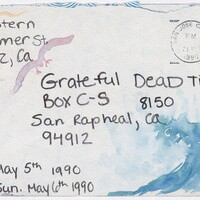 stern
mer St.
Z, Ca
Grateful Dead T
Box C-S 8150
San Rapheal, Ca
94912
May 5th 1990
Sun. May 6th 1990
PM